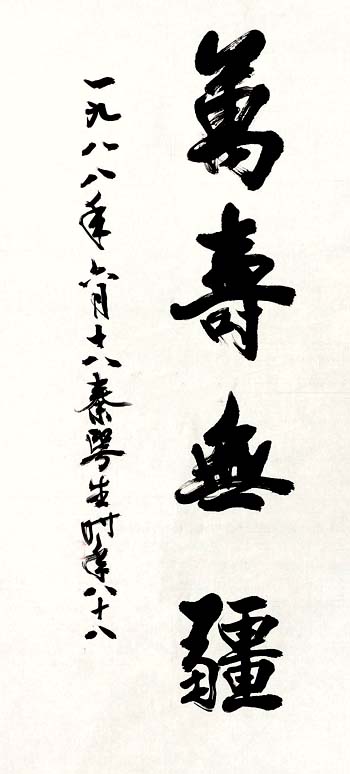 萬壽無疆
一九八八年六月十八秦咢生时年八十八